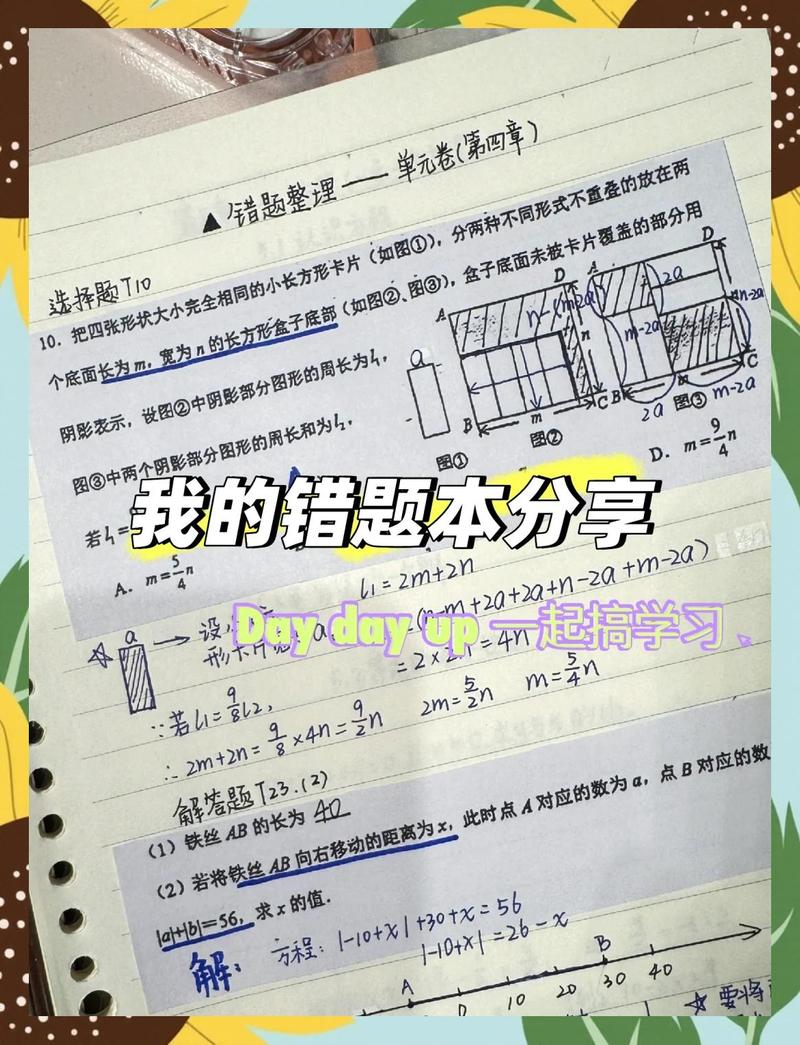 ▲错题整理——单元卷(第四章)
选择题T10
10. 把四张形状大小完全相同的小长方形卡片(如图①),分两种不同形式不重叠的放在两
个底面长为m,宽为n的长方形盒子底部(如图②、图③),盒子底面未被卡片覆盖的部分用
阴影表示,设图②中阴影部分图形的周长为l₁,
图③中两个阴影部分图形的周长和为l₂,
若l₁=
A. m=5/4n
D. m=9/4n
a
图①
A
D
n
B
m
C
图②
A
D
2a
n-2a
m-2a
B
m
C
2a
图③
m-2a
我的错题本分享
Day day up 一起搞学习
l₁=2m+2n
☆
a
→ 设
=4n
∵若l₁=9/8l₂,
∴2m+2n=9/8×4n=9/2n 2m=5/2n m=5/4n
解答题T23.(2)
(1)铁丝AB的长为 40
(2)若将铁丝AB向右移动的距离为x,此时点A对应的数为a,点B对应的数
|a|+|b|=56,求x的值.
解: 方程: |-10+x|+30+x=56
|-10+x|=26-x
A
B
0 10 20 30 40
☆要将